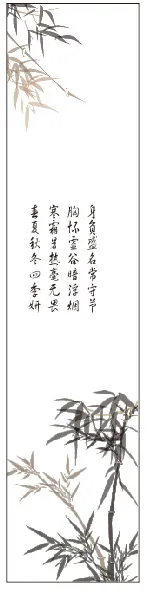 身负盛名常守节
胸怀虚谷暗浮烟
寒霜昱热毫无畏
春夏秋冬四季妍